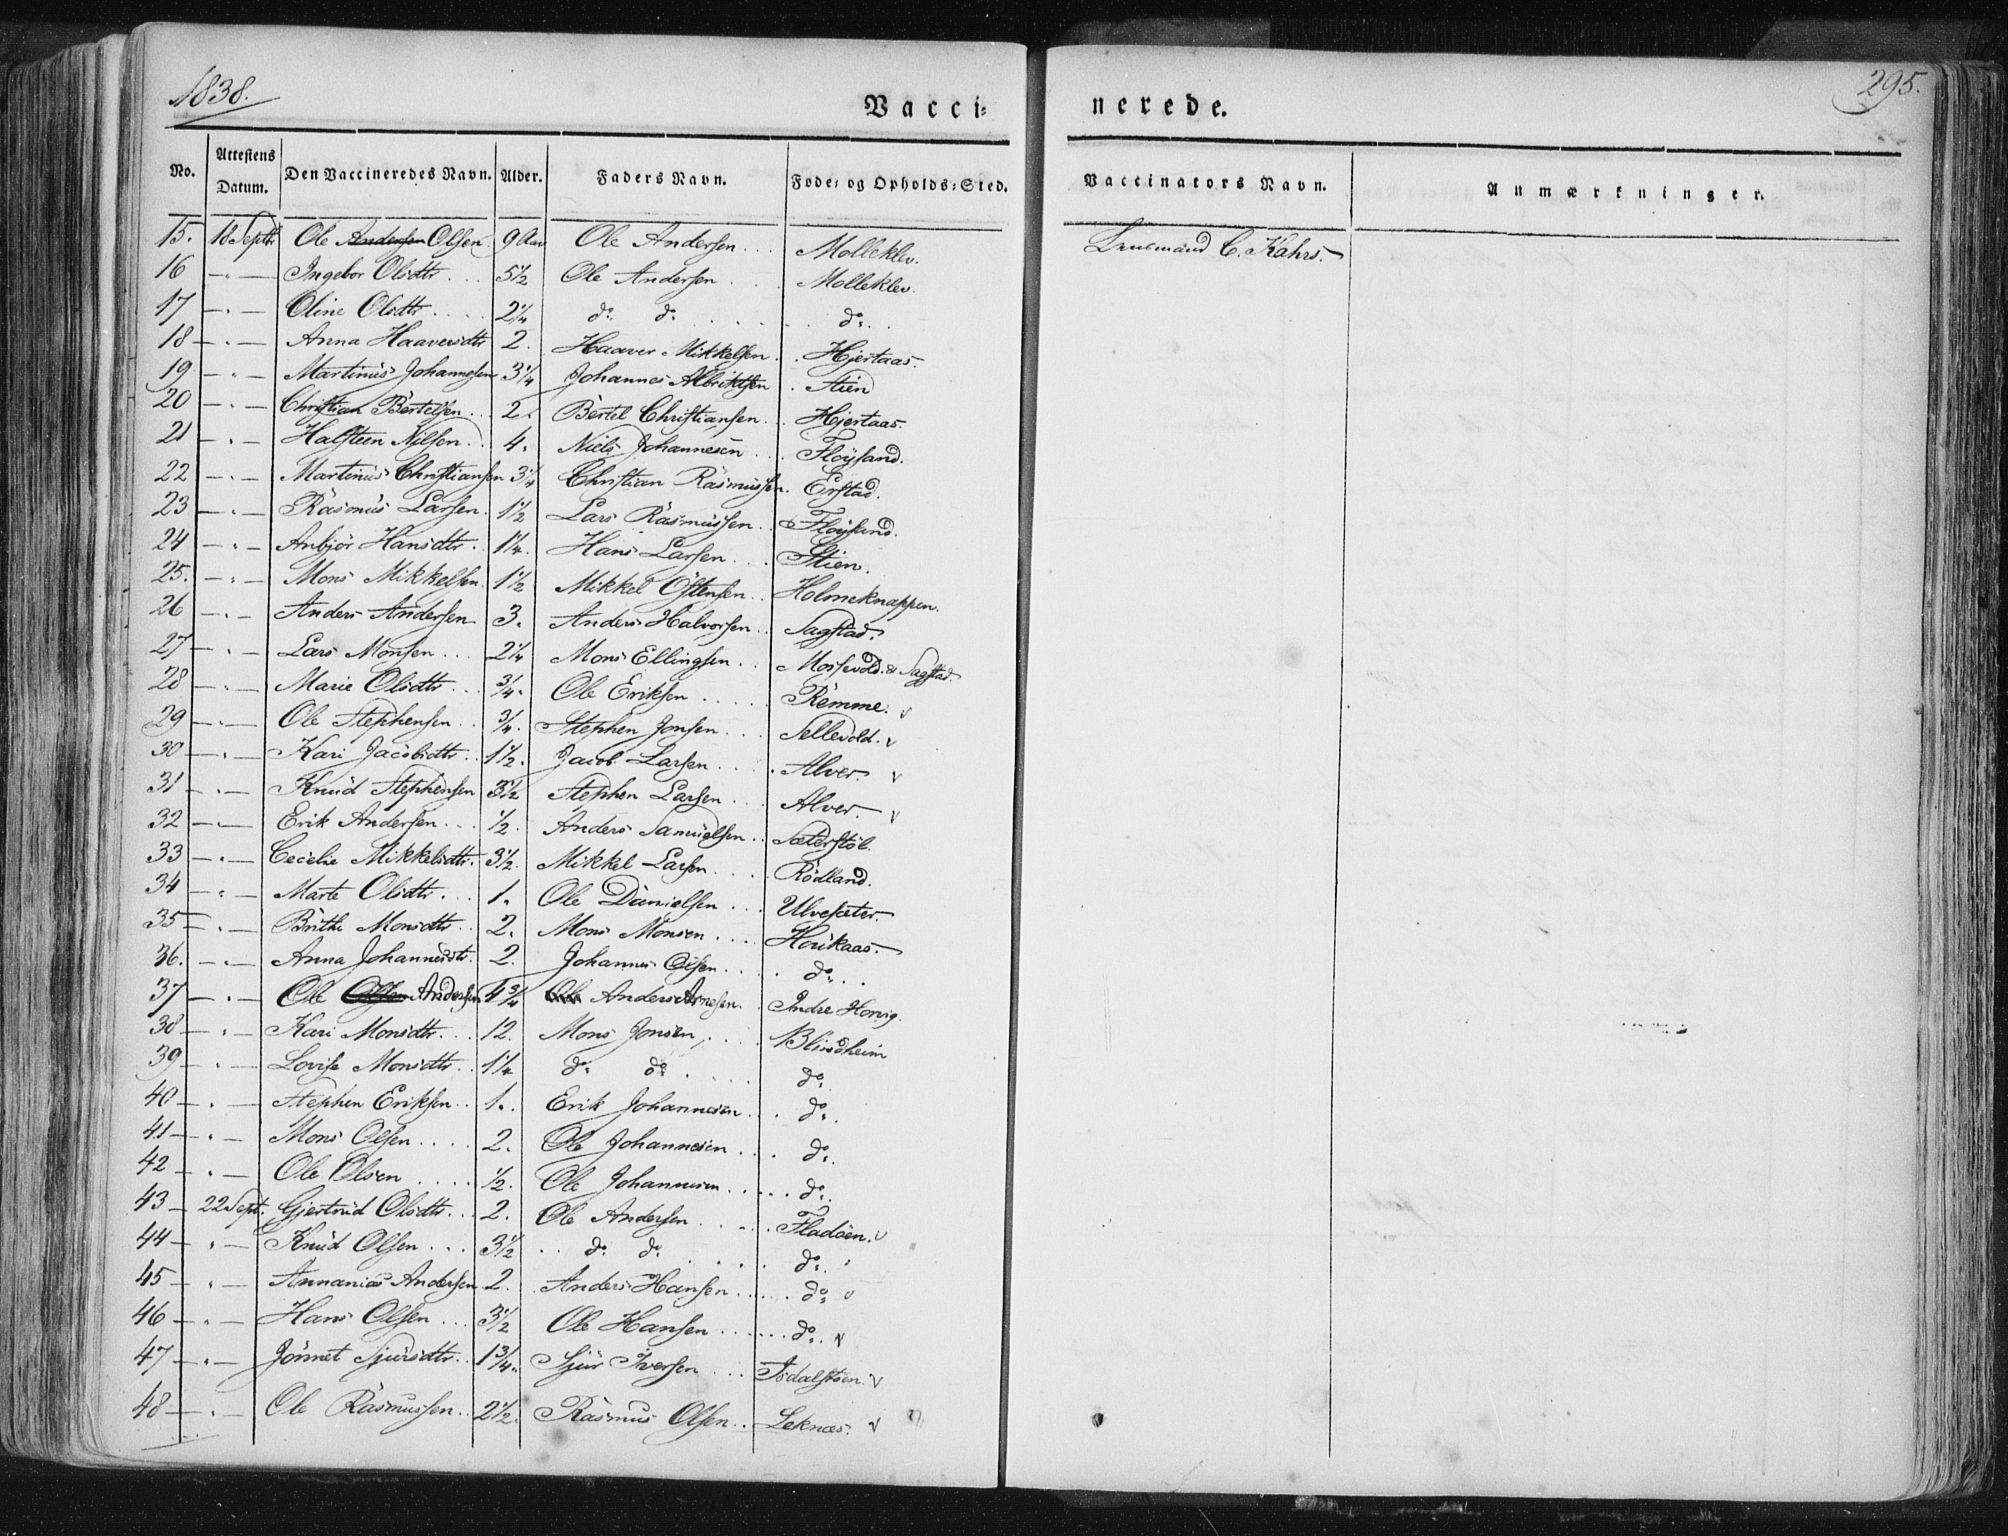 1838.
Vacci=
nerede.
295.
No. Attestens Datum. Den Vaccineredes Navn. Alder. Faders Navn. Føde= og Opholds=Sted. Vaccinators Navn. Anmærkninger.
15. 18 Septr. Ole Andersen Olsen 9 Aar Ole Andersen Molleklev. Lensmand C. Kahrs.
16 — " — Ingebor Olsdtr 5½ Ole Andersen Molleklev.
17 — " — Oline Olsdtr 2¼ do. do. do.
18 — " — Anna Haaversdtr 2. Haaver Mikkelsen Hjertaas.
19 — " — Martinus Johannesen 3¼ Johannes Albriktsen Stien
20 — " — Christian Bertelsen 2. Bertel Christiansen Hjertaas.
21 — " — Halsteen Nilsen 4. Niels Johannesen Fløysand.
22 — " — Martinus Christiansen 3¼ Christian Rasmussen. Erstad.
23 — " — Rasmus Larsen 1½ Lars Rasmussen Fløysand.
24 — " — Anbjør Hansdtr. 1¼. Hans Larsen Stien.
25. — " — Mons Mikkelsen 1½ Mikkel Østensen Holmeknappen.
26 — " — Anders Andersen 3. Anders Halvorsen Sagstad.
27 — " — Lars Monsen 2¼ Mons Ellingsen Morsevold. & Sagstad.
28 — " — Marie Olsdtr ¾. Ole Eriksen Remme. v
29 — " — Ole Stephensen ¾. Stephen Jonsen Sellevold. v
30 — " — Kari Jacobsdtr 1½. Jacob Larsen Alver. v
31 — " — Knud Stephensen 3½ Stephen Larsen Alver. v
32 — " — Erik Andersen ½. Anders Samuelsen Sæterstøl.
33 — " — Cecelie Mikkelsdtr. 3½. Mikkel Larsen Rødland.
34 — " — Marte Olsdtr. 1. Ole Danielsen Ulvesæter.
35 — " — Brithe Monsdtr. 2. Mons Monsen Houkaas.
36. — " — Anna Johannesdtr. 2. Johannes Olsen do.
37 — " — Ole Olsen Andersen 4¾ Ole Anders Arnesen. Indre Horvig.
38 — " — Kari Monsdtr. 12. Mons Jonsen, Blindheim
39 — " — Lovise Monsdtr. 1¼ do. do. do.
40 — " — Stephen Eriksen 1. Erik Johannesen do.
41 — " — Mons Olsen 2. Ole Johannesen do.
42 — " — Ole Olsen ½. Ole Johannesen do.
43 — 22 Sept. Gjertrud Olsdtr. 2. Ole Andersen Fladøen. v
44 — " — Knud Olsen 3½ do. do. do.
45 — " — Annanias Andersen 2. Anders Hansen do. v
46 — " — Hans Olsen 3½ Ole Hansen do. v
47 — " — Jønnet Sjursdtr. 1¾. Sjur Iversen Isdalstøen. v
48 — " — Ole Rasmussen 2½. Rasmus Olsen Leknæs. v